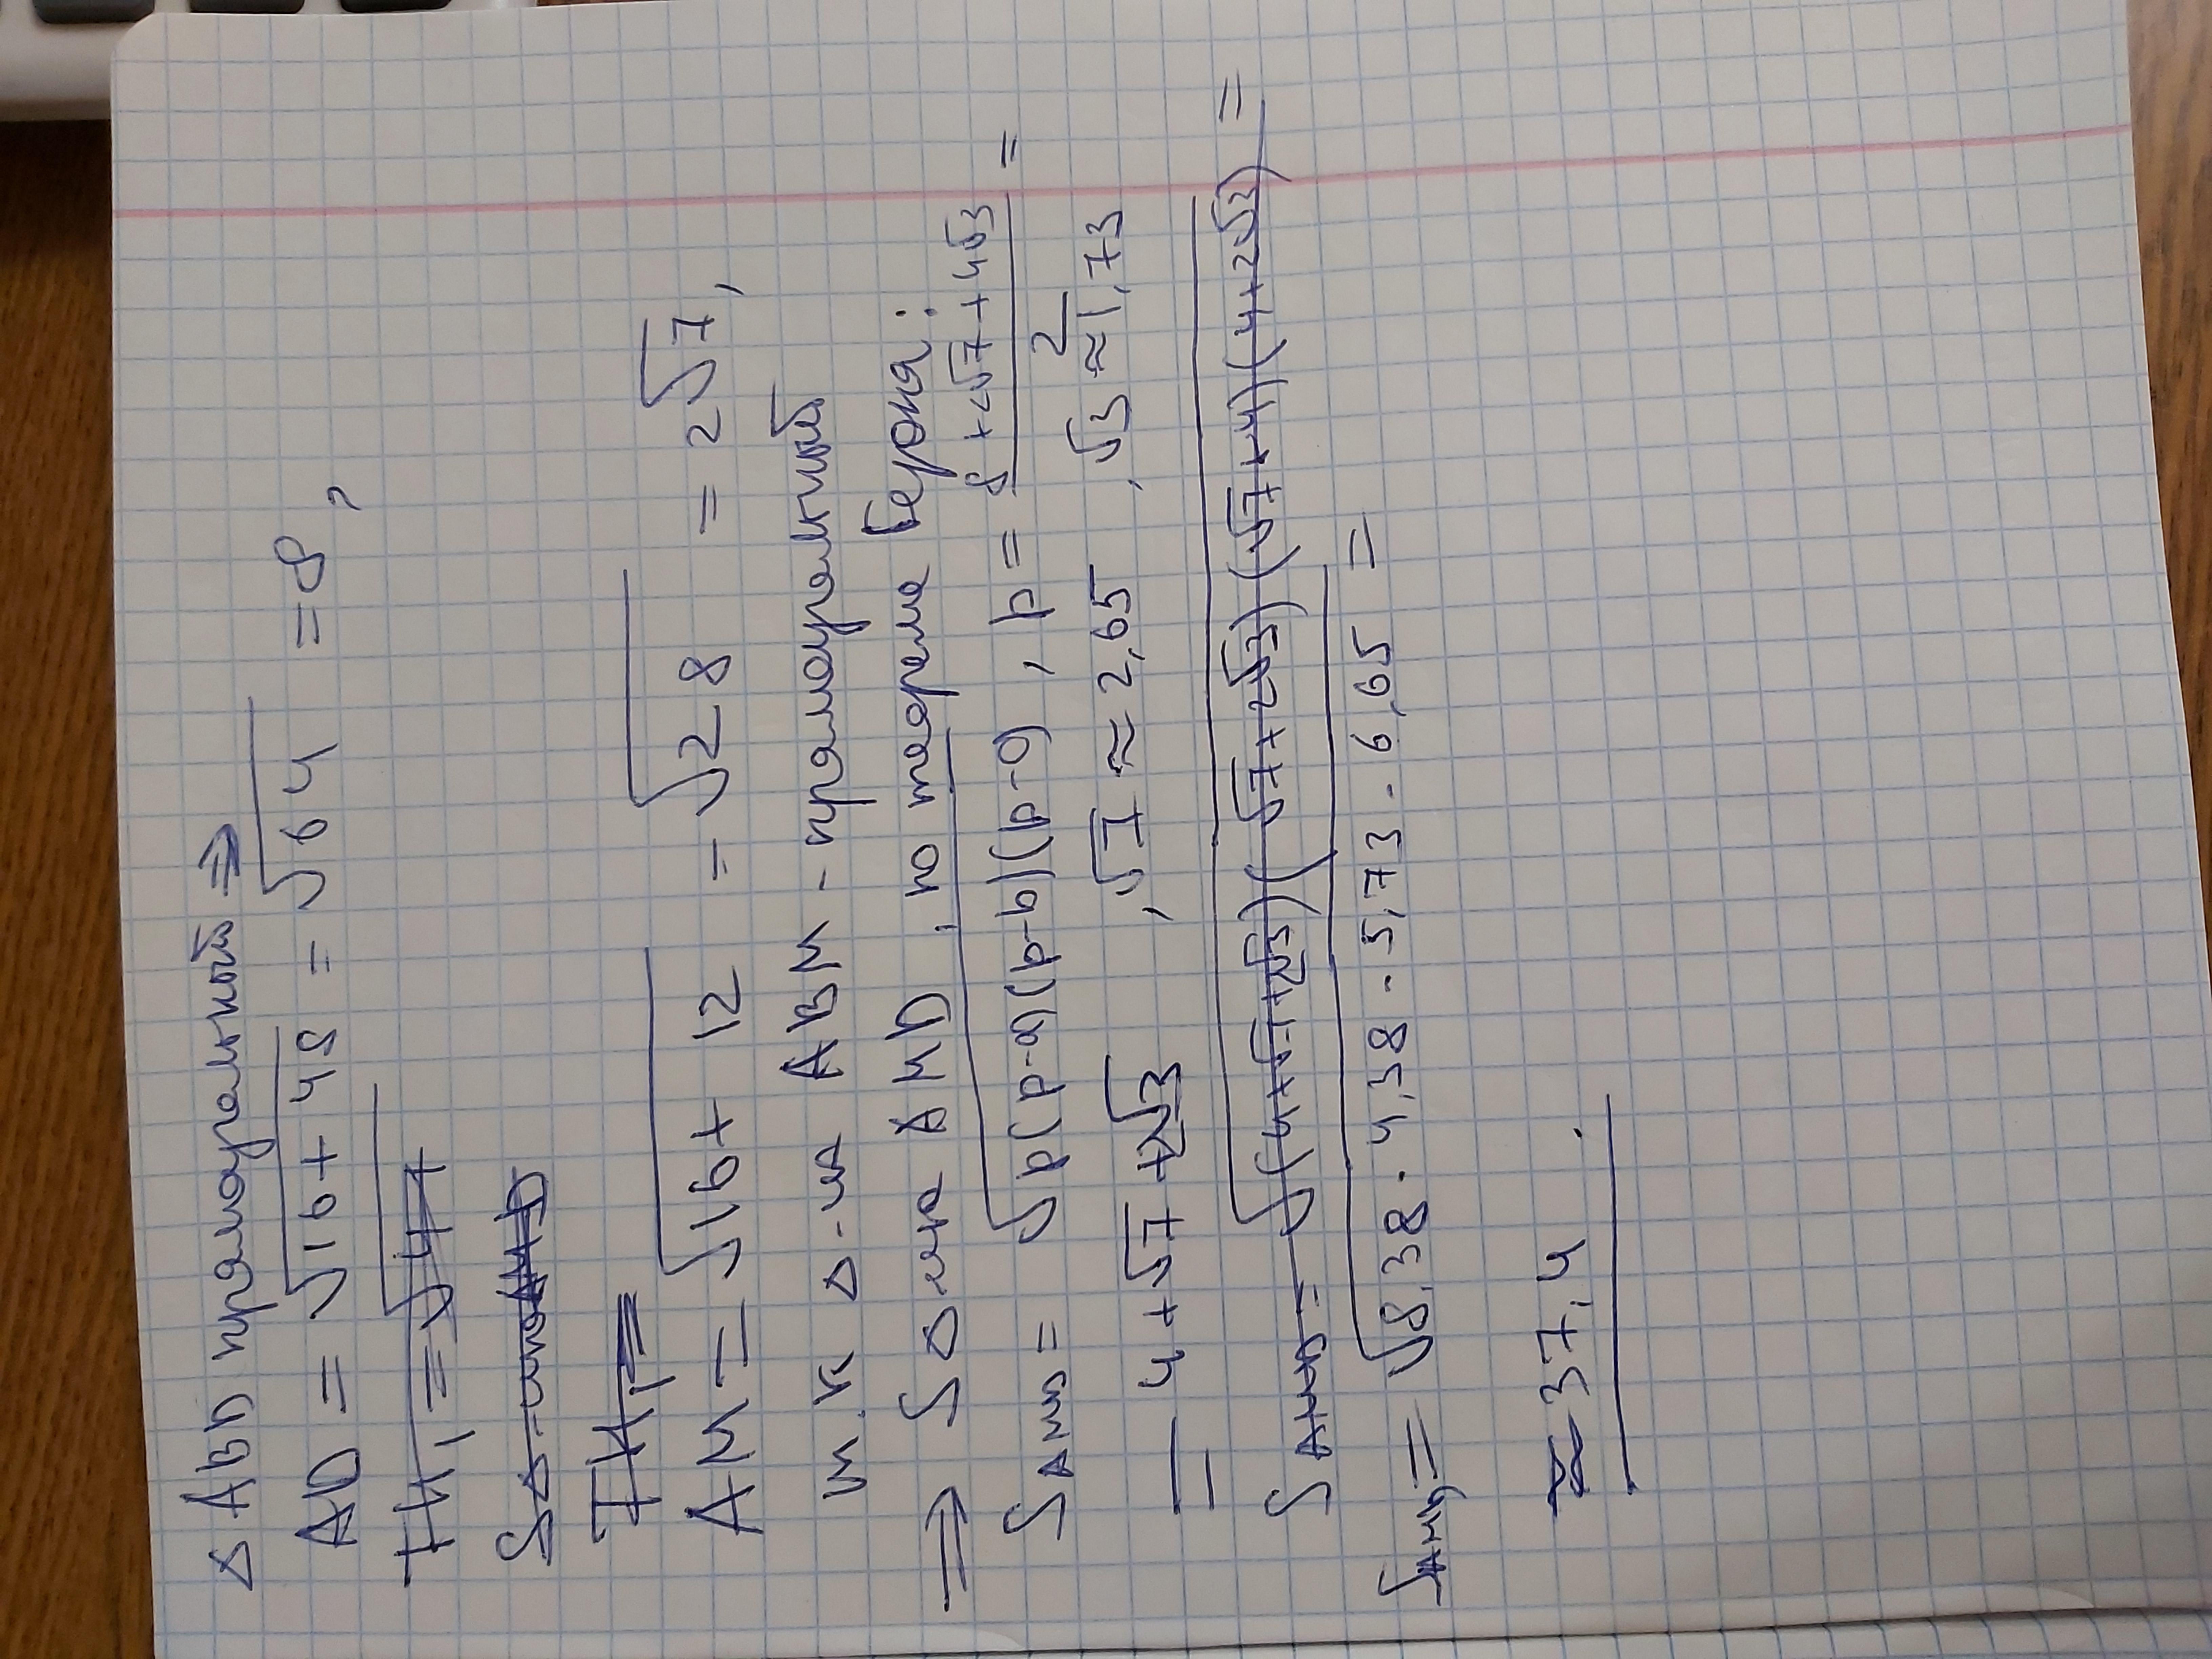 △ ABD прямоугольный ⇒
AD = √16+48 = √64 = 8,
AM = √16+12 = √28 = 2√7,
т.к △-ик ABM - прямоугольный
⇒ S △-ика AMD, по теореме Герона:
S AMD = √p(p-a)(p-b)(p-c), p = 8+2√7+4√3 / 2 =
= 4+√7+2√3, √7 ≈ 2,65, √3 ≈ 1,73
S AMD = √(4+√7+2√3)(√7+2√3)(√7+4)(4+2√3) =
S AMD = √8,38 · 4,38 · 5,73 · 6,65 =
≈ 37,4